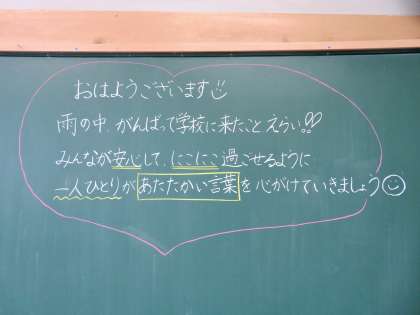 おはようございます
雨の中、がんばって学校に来たことえらい!!
みんなが安心して、にこにこ過ごせるように
一人ひとりがあたたかい言葉を心がけていきましょう